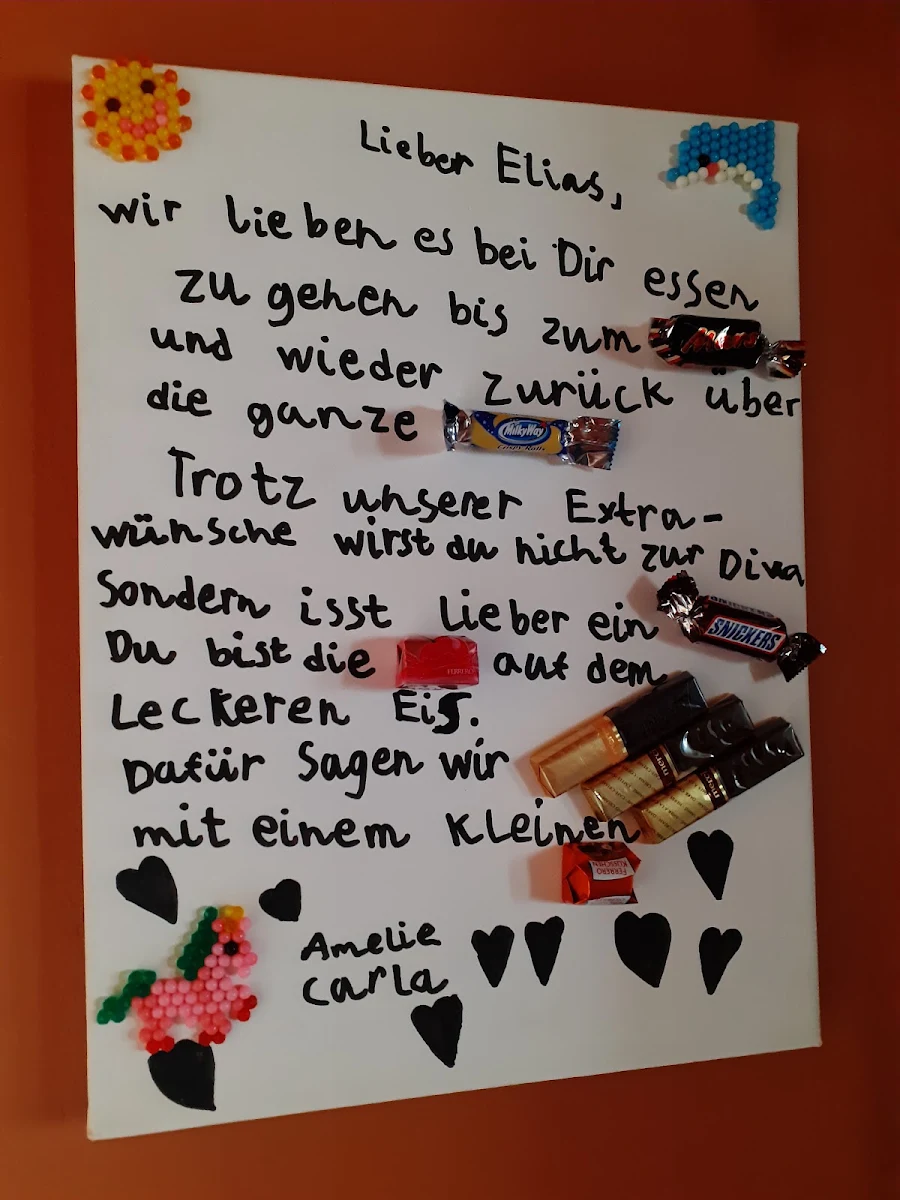 Lieber Elias,
wir lieben es bei Dir essen
zu gehen bis zum Mars
und wieder zurück über
die ganze MilkyWay
Trotz unserer Extra-
wünsche wirst du nicht zur Diva
Sondern isst lieber ein SNICKERS
Du bist die FERRERO auf dem
Leckeren Eis.
Dafür Sagen wir merci
mit einem Kleinen
FERRERO
KÜSSCHEN
Amelie
Carla